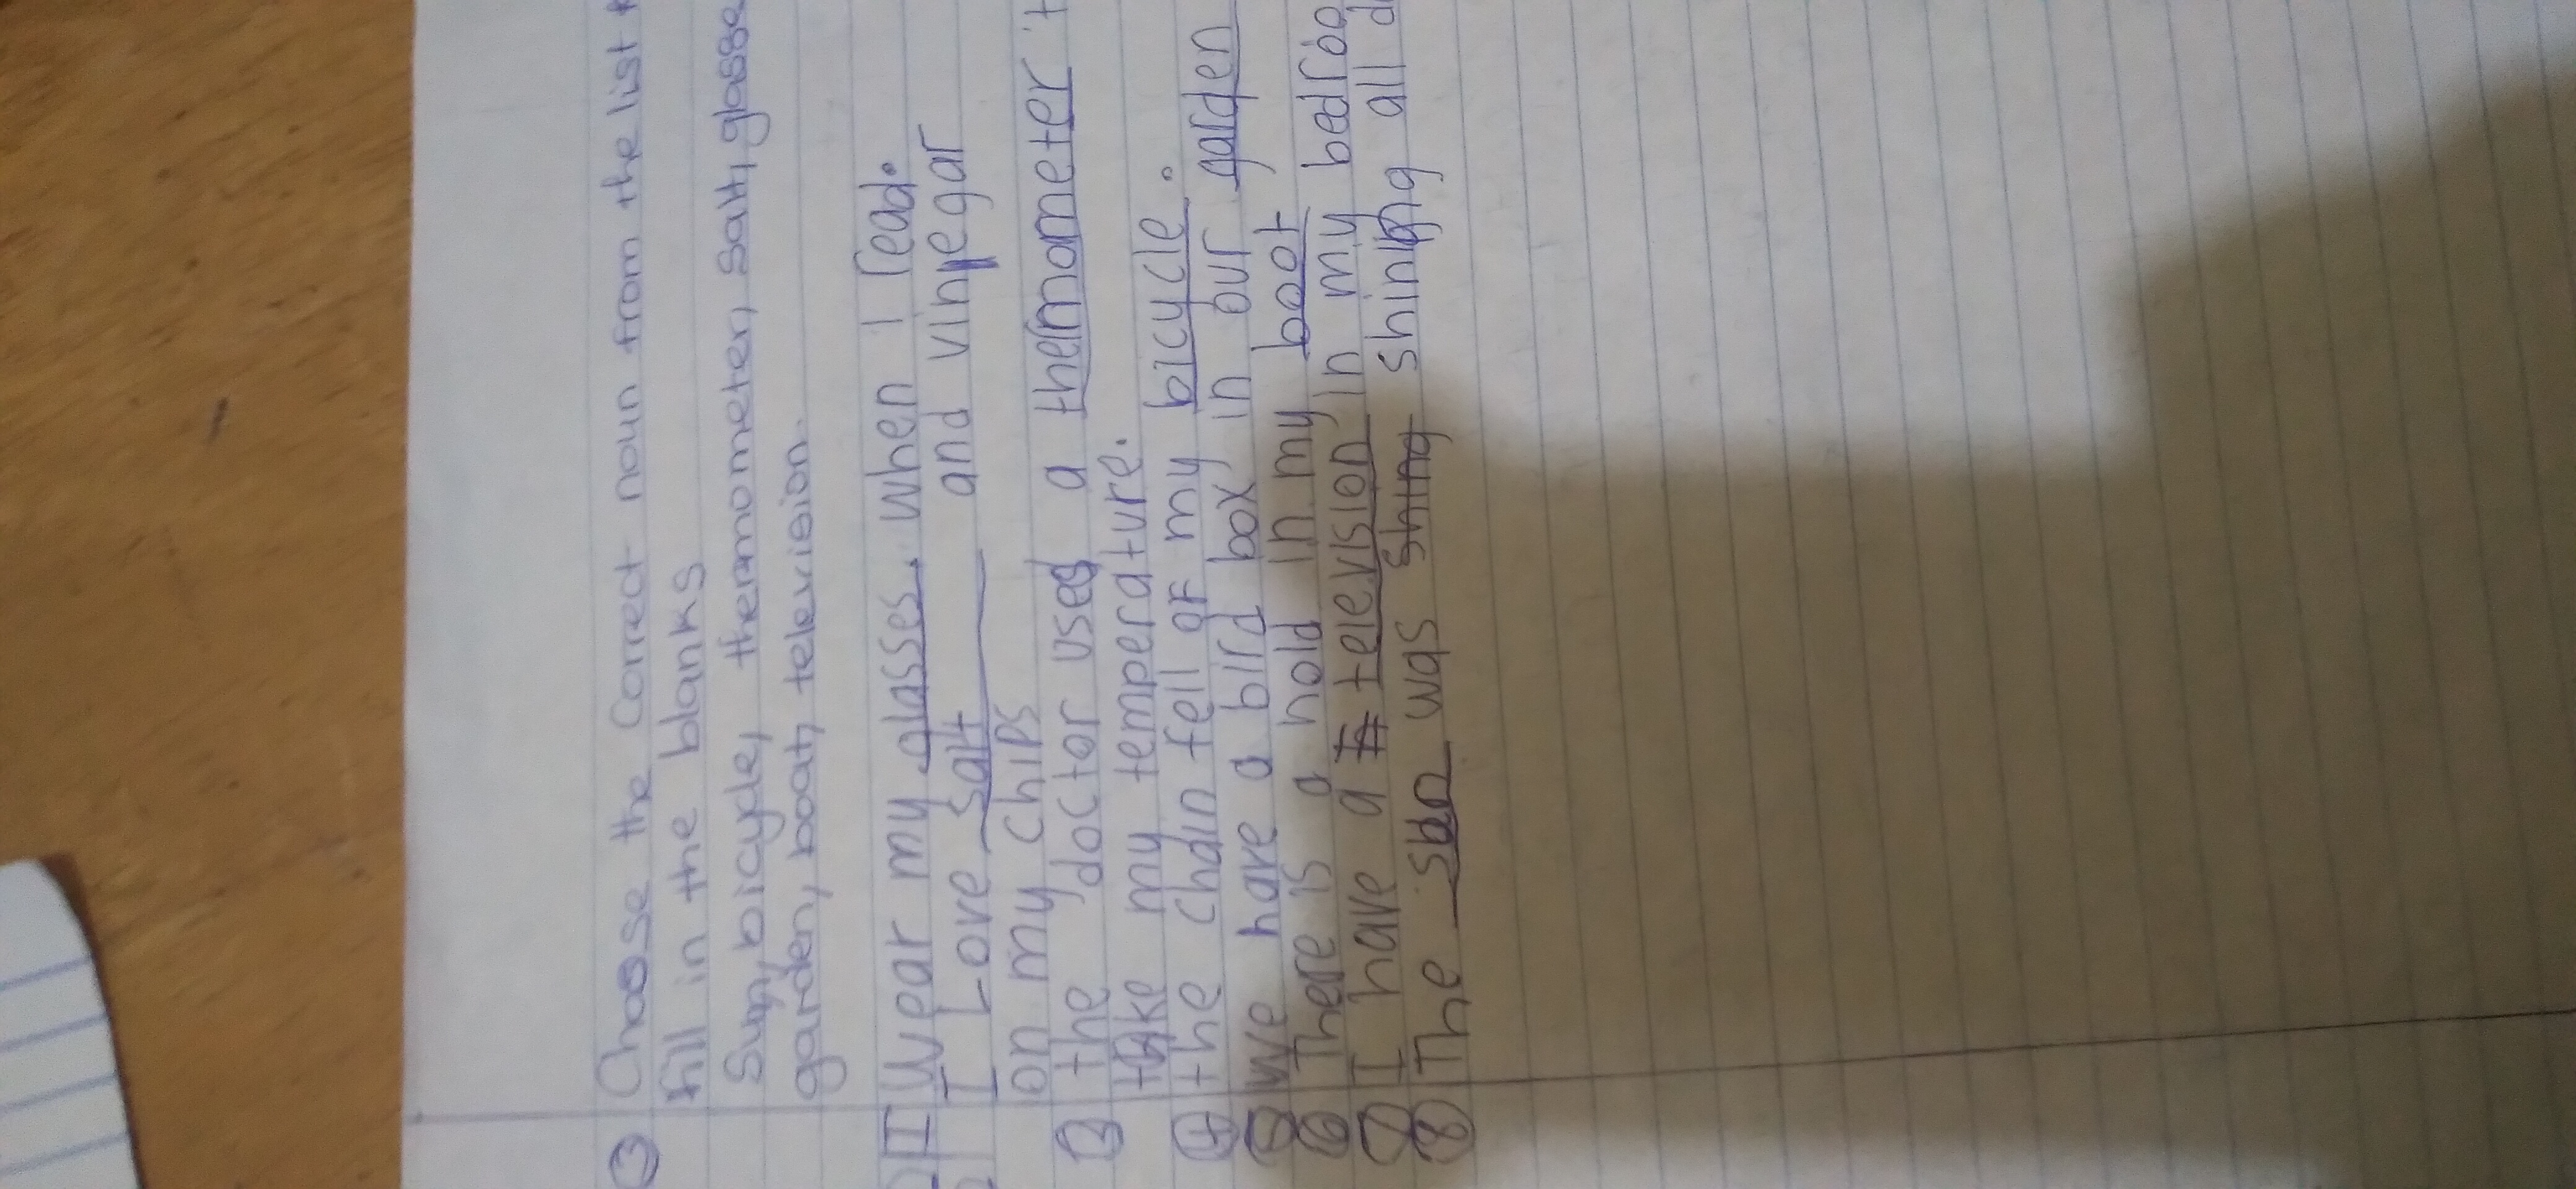 ③ Choose the Correct noun from the list
fill in the blanks
Sun, bicycle, thermometer, Salt, glasse
garden, boat, television.
I Wear my glasses. when I read.
I Love salt and vinegar
on my chips
③ the doctor used a thermometer t
take my temperature.
④ the chain fell of my bicycle.
⑤ We have a bird box in our garden
⑥ There is a hold in my boot
⑦ I have a television in my bedroo
⑧ The sun was shing shining all d